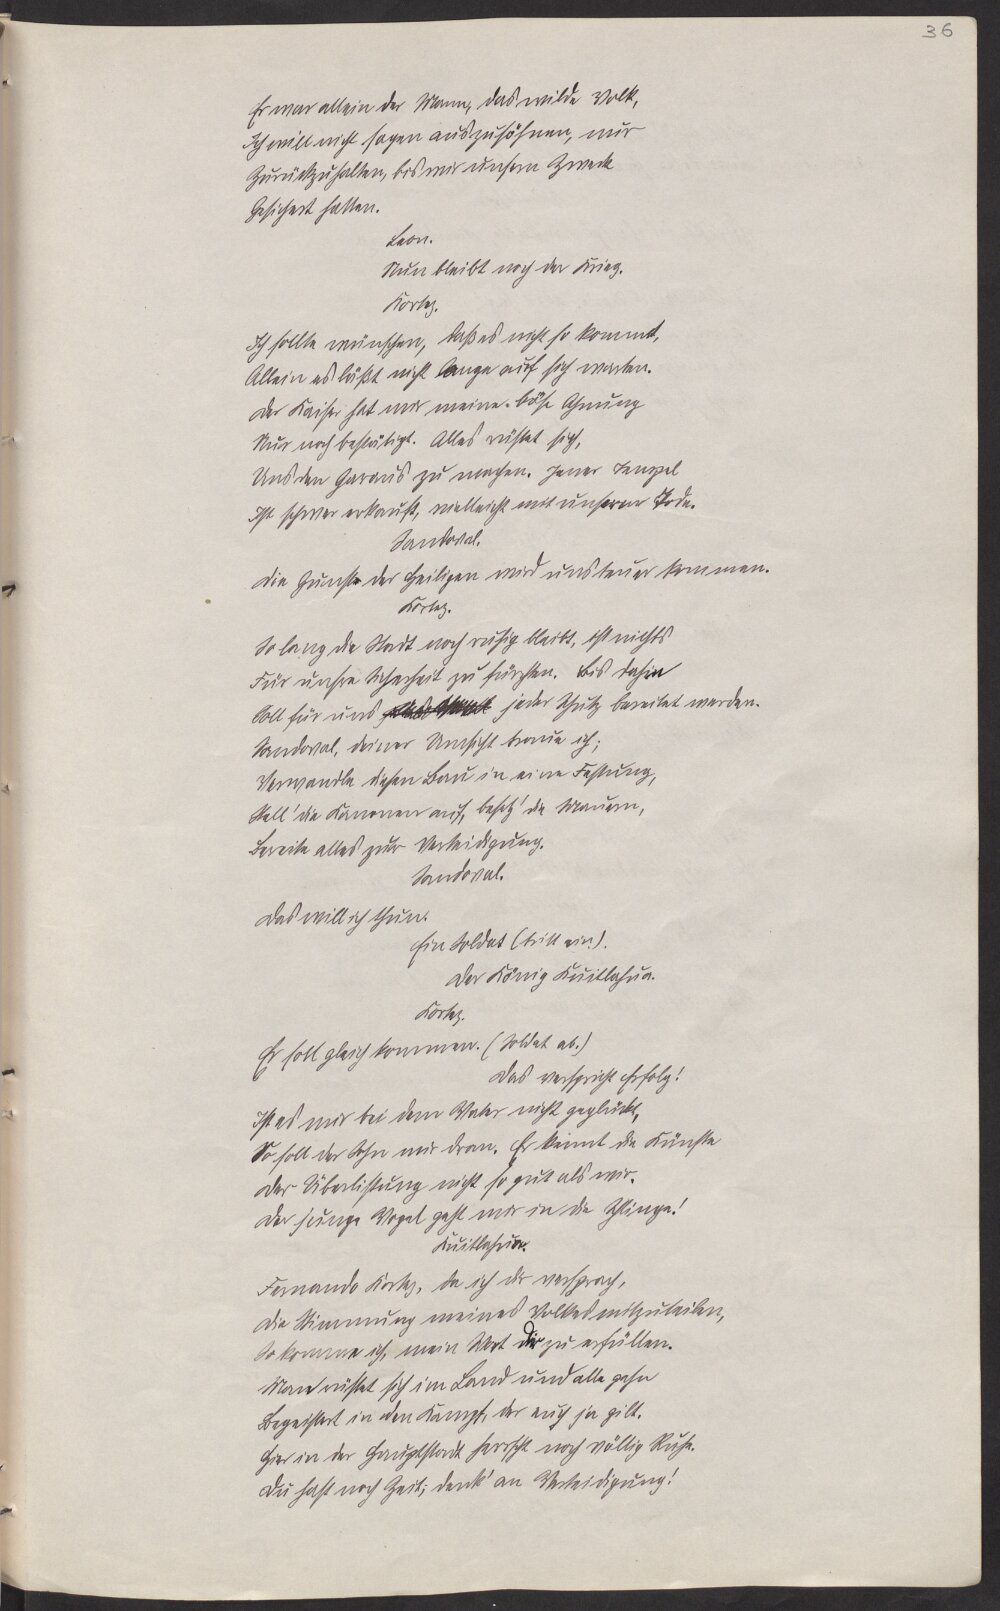 36
Er war allein der Mann, das wilde Volk,
Ich will nicht sagen auszusöhnen, nur
Zurückzuhalten, bis wir unsern Zweck
Gesichert hatten.
Leon.
Nun bleibt noch der Krieg.
Kortez.
Ich sollte wünschen, daß es nicht so kommt,
Allein es läßt nicht lange auf sich warten.
Der Kaiser hat mir meine böse Ahnung
Nur noch bestätigt. Alles rüstet sich,
Uns den Garaus zu machen. Jener Tempel
Ist schwer erkauft, vielleicht mit unserm Tode.
Sandoval.
Die Gunst der Heiligen wird uns teuer kommen.
Kortez.
So lang die Stadt noch ruhig bleibt, ist nichts
Für unsre Sicherheit zu fürchten. Bis dahin
Soll für uns jeder Schutz bereitet werden.
Sandoval, deiner Umsicht traue ich;
Verwandle diesen Bau in eine Festung,
Stell' die Kanonen auf, besetz' die Mauern,
Bereite alles zur Verteidigung.
Sandoval.
Das will ich thun.
Ein Soldat (tritt ein).
Der König Kuitlahua.
Kortez.
Er soll gleich kommen. (Soldat ab.)
Das verspricht Erfolg!
Ist es mir bei dem Vater nicht geglückt,
So soll der Sohn mir dran. Er kennt die Künste
Der Überlistung nicht so gut als wir.
Der junge Vogel geht mir in die Schlinge!
Kuitlahua.
Fernando Kortez, da ich dir versprach,
Die Stimmung meines Volkes mitzuteilen,
So komme ich, mein Wort dir zu erfüllen.
Man rüstet sich im Land und alle gehn
Begeistert in den Kampf, der euch ja gilt.
Hier in der Hauptstadt herrscht noch völlig Ruhe.
Du hast noch Zeit; denk' an Verteidigung!